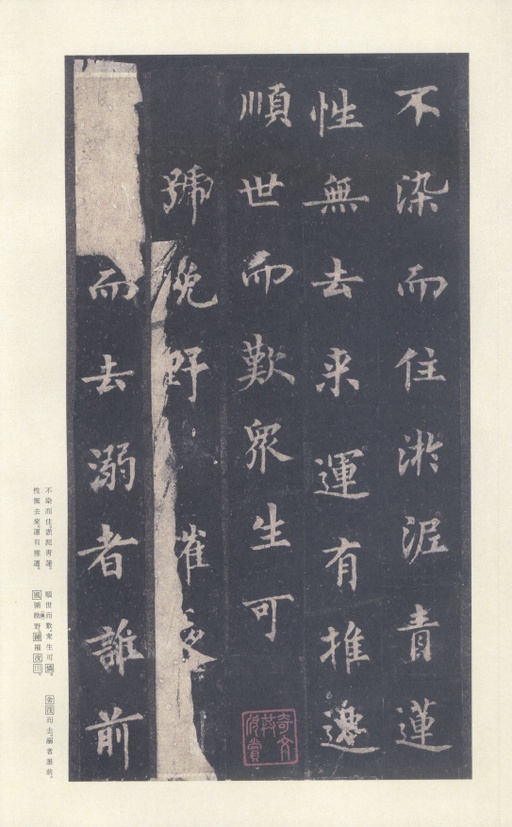 不染而住淤泥青蓮
性無去来運有推遷
順世而歎衆生可
號俛野 摧
而去溺者誰前
不染而住淤泥青蓮。
性無去來運有推遷。
順世而歎衆生可
野 摧
而去溺者誰前。